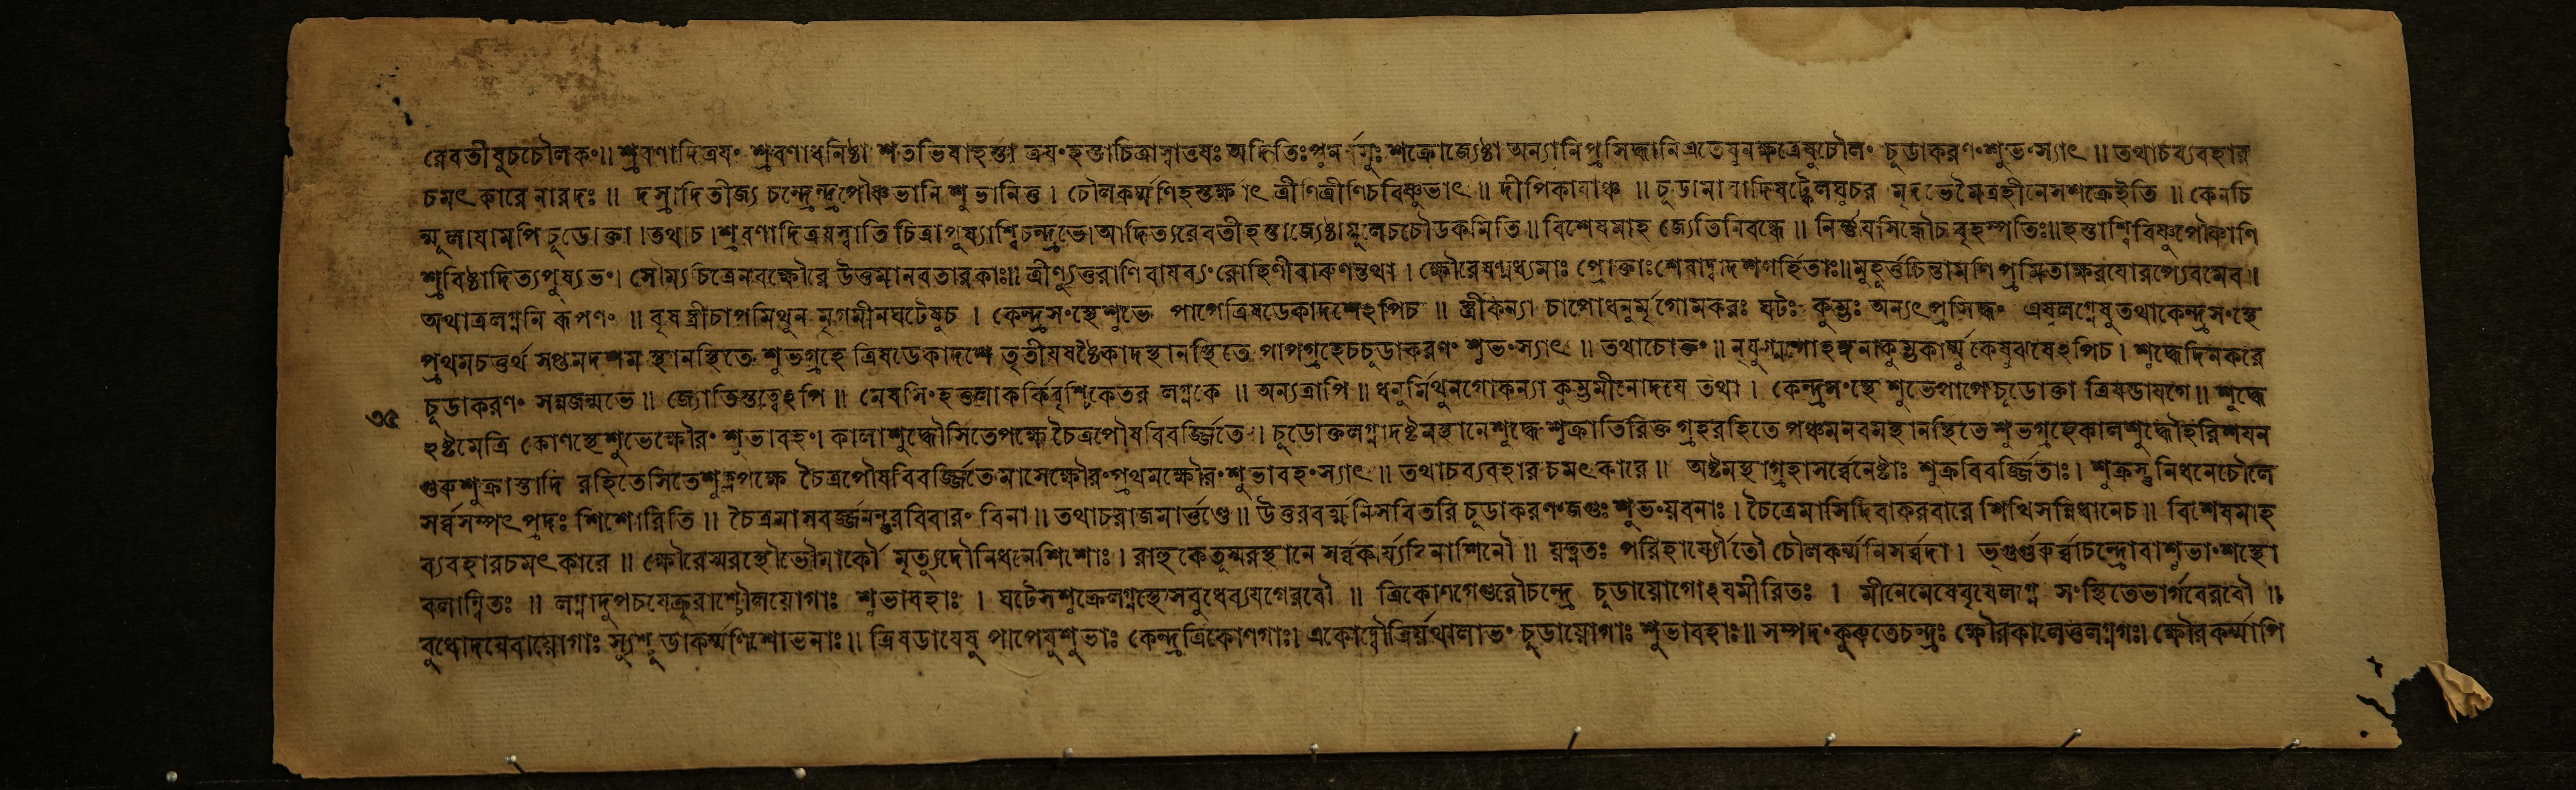 রেবতীষুচচৌলকং॥ শ্রবণাদিত্রয়ং শ্রবণাধনিষ্ঠা শতভিষাহস্তা ত্রয়ংহস্তাচিত্রাস্বাত্তয়ঃ অদিতিঃপুনর্ব্বসুঃ শক্রোজ্যেষ্ঠা অন্যানিপ্রসিদ্ধানিএতেষুনক্ষত্রেষুচৌলং চূডাকরণংশুভংস্যাৎ ॥ তথাচব্যবহার
চমৎকারে নারদঃ ॥ দস্রাদিতীজ্য চন্দ্রেন্দ্রপৌষ্ণভানি শুভানিত্ত । চৌলকর্ম্মণিহস্তক্ষাৎ ত্রীণিত্রীণিচবিষ্ণুভাৎ ॥ দীপিকাযাঞ্চ ॥ চূডামাঘাদিষট্কেলঘুচর মৃদভেমৈত্রহীনেসশক্রেইতি ॥ কেনচি
ন্মূলাযামপিচূডোক্তা ।তথাচ। শ্রবণাদিত্রয়স্বাতি চিত্রাপুষ্যাশ্বিচন্দ্রভে।আদিত্যরেবতীহস্তাজ্যেষ্ঠামূলেচচৌডকমিতি ॥ বিশেষমাহ জ্যেতিনিবন্ধে ॥ নির্ন্নযসিন্ধৌচবৃহস্পতিঃ॥হস্তাশ্বিবিষ্ণুপৌষ্ণাণি
শ্রবিষ্ঠাদিত্যপুষ্যভং। সৌম্যচিত্রেনবক্ষৌরে উত্তমানবতারকাঃ॥ ত্রীণ্যুত্তরাণিবাযব্যংরোহিণীবাৰুণন্তথা । ক্ষৌরেষণ্মধ্যমাঃ প্রোক্তাঃশেষাদ্বাদশগর্হিতাঃ॥মুহূর্ত্তচিন্তামণিপ্রমিতাক্ষরযোরপ্যেবমেব॥
অথাত্রলগ্ননিৰূপণং ॥ বৃষস্ত্রীচাপমিথুন মৃগমীনঘটেষুচ । কেন্দ্রসংস্থেশুভে পাপেত্রিষডেকাদশেঽপিচ ॥ স্ত্রীকন্যা চাপোধনুর্মৃগোমকরঃ ঘটঃ কুম্ভঃ অন্যৎপ্রসিদ্ধং এষুলগ্নেষুতথাকেন্দ্রসংস্থে
প্রথমচত্তুর্থ সপ্তমদশম স্থানস্থিতে শুভগ্রহে ত্রিষডেকাদশে তৃতীযষষ্ঠৈকাদস্থানস্থিতে পাপগ্রহেচচূডাকরণং শুভংস্যাৎ ॥ তথাচোক্তং॥ নৃযুগ্মগোহঙ্গনাকুম্ভকার্ম্মুকেষুঝষেঽপিচ। শুদ্ধেদিনকরে
চূডাকরণং সন্নজন্মভে ॥ জ্যোতিস্তত্বেঽপি ॥ মেষসিংহত্তুলাকর্কিবৃশ্চিকেতর লগ্নকে ॥ অন্যত্রাপি ॥ ধনুর্মিথুনগোকন্যা কুম্ভমীনোদযে তথা । কেন্দ্রসংস্থে শুভেপাপেচূডোক্তা ত্রিষডাযগে॥ শুদ্ধে
৩৫
ঽষ্টমেত্রি কোণস্থেশুভেক্ষৌরং শুভাবহং। কালাশুদ্ধৌসিতেপক্ষে চৈত্রপৌষবিবর্জ্জিতে । চূডোক্তলগ্নাদষ্টমস্থানেশুদ্ধে শুক্রাতিরিক্ত গ্রহরহিতে পঞ্চমনবমস্থানস্থিতে শুভগ্রহেকালশুদ্ধৌহরিশযন
গুৰুশুক্রাস্তাদি রহিতেসিতেশুক্লপক্ষে চৈত্রপৌষবিবর্জ্জিতেমাসেক্ষৌরংপ্রথমক্ষৌরংশুভাবহংস্যাৎ ॥ তথাচব্যবহারচমৎকারে ॥ অষ্টমস্থাগ্রহাসর্ব্বেনেষ্টাঃ শুক্রবিবর্জ্জিতাঃ । শুক্রস্তুনিধনেচৌলে
সর্ব্বসম্পৎপ্রদঃ শিশোরিতি ॥ চৈত্রমাসবর্জ্জনন্তুরবিবারং বিনা ॥ তথাচরাজমার্ত্তণ্ডে ॥ উত্তরবর্ত্মনিসবিতরি চূডাকরণংজগুঃ শুভংয়বনাঃ । চৈত্রেমাসিদিবাকরবারে শিথিসন্নিধানেচ ॥ বিশেষমাহ
ব্যবহারচমৎকারে ॥ ক্ষৌরেস্মরস্থৌভৌমার্কৌ মৃত্যুদৌনিধনেশিশোঃ । রাহুকেতূস্মরস্থানে সর্ব্বকার্য্যবিনাশিনৌ ॥ য়ত্নতঃ পরিহার্য্যৌতৌ চৌলকর্ম্মনিসর্ব্বদা । ভৃগুর্গুৰুর্ব্বাচন্দ্রোবাশুভাংশস্থো
বলান্বিতঃ ॥ লগ্নাদুপচযেক্রূরাশ্চৌলয়োগাঃ শুভাবহাঃ । ঘটেসশুক্রেলগ্নস্থেসবুধেব্যযগেরবৌ ॥ ত্রিকোণগেগুরৌচন্দ্রে চূডায়োগোঽযমীরিতঃ । মীনেমেষেবৃষেলগ্ন সংস্থিতেভার্গবেরবৌ ॥
বুধোদযেবায়োগাঃ স্যুশ্চূডাকর্ম্মণিশোভনাঃ ॥ ত্রিষডাযেষু পাপেষুশুভাঃ কেন্দ্রত্রিকোণগাঃ। একোদ্বৌত্রির্য়থালাভং চূডায়োগাঃ শুভাবহাঃ॥ সম্পদংকুৰুতেচন্দ্রঃ ক্ষৌরকালেত্তুলগ্নগঃ। ক্ষৌরকর্ম্মাপি